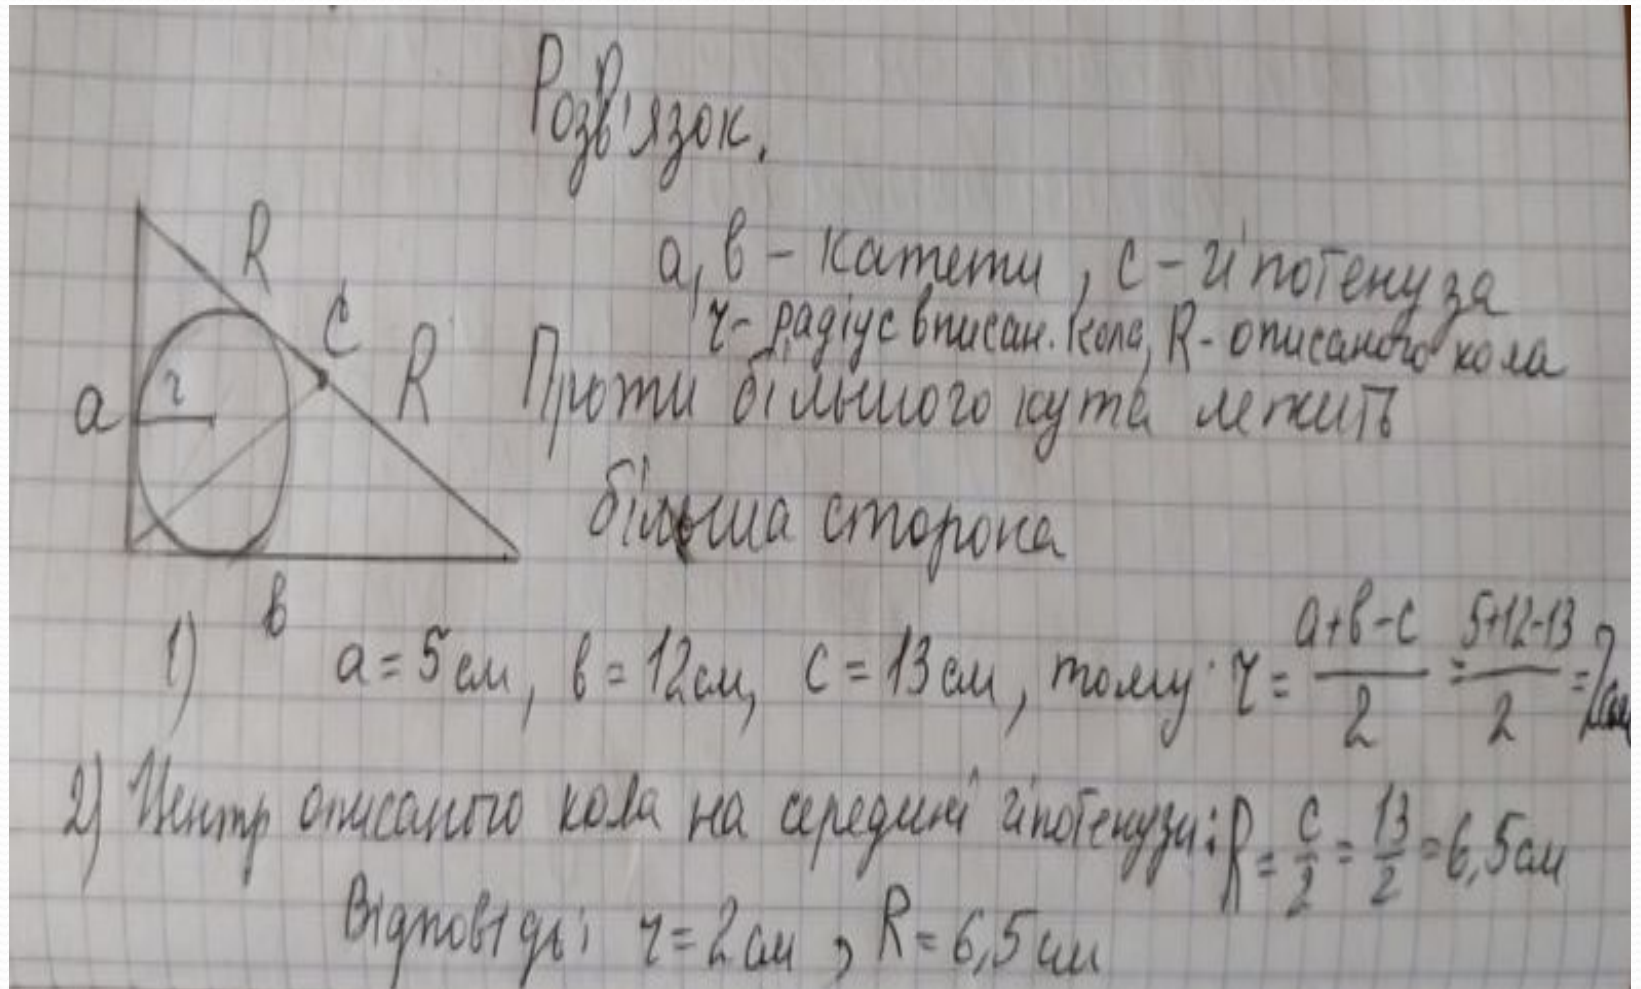 Розв'язок.
a, в - катети, c - гіпотенуза
r - радіус вписан. кола, R - описаного кола
Проти більшого кута лежить
більша сторона
R
C
R
a
r
в
1) a = 5 см, в = 12 см, c = 13 см, тому: r = (a+в-c)/2 = (5+12-13)/2 = 2 см
2) Центр описаного кола на середині гіпотенузи: R = c/2 = 13/2 = 6,5 см
Відповідь: r = 2 см, R = 6,5 см